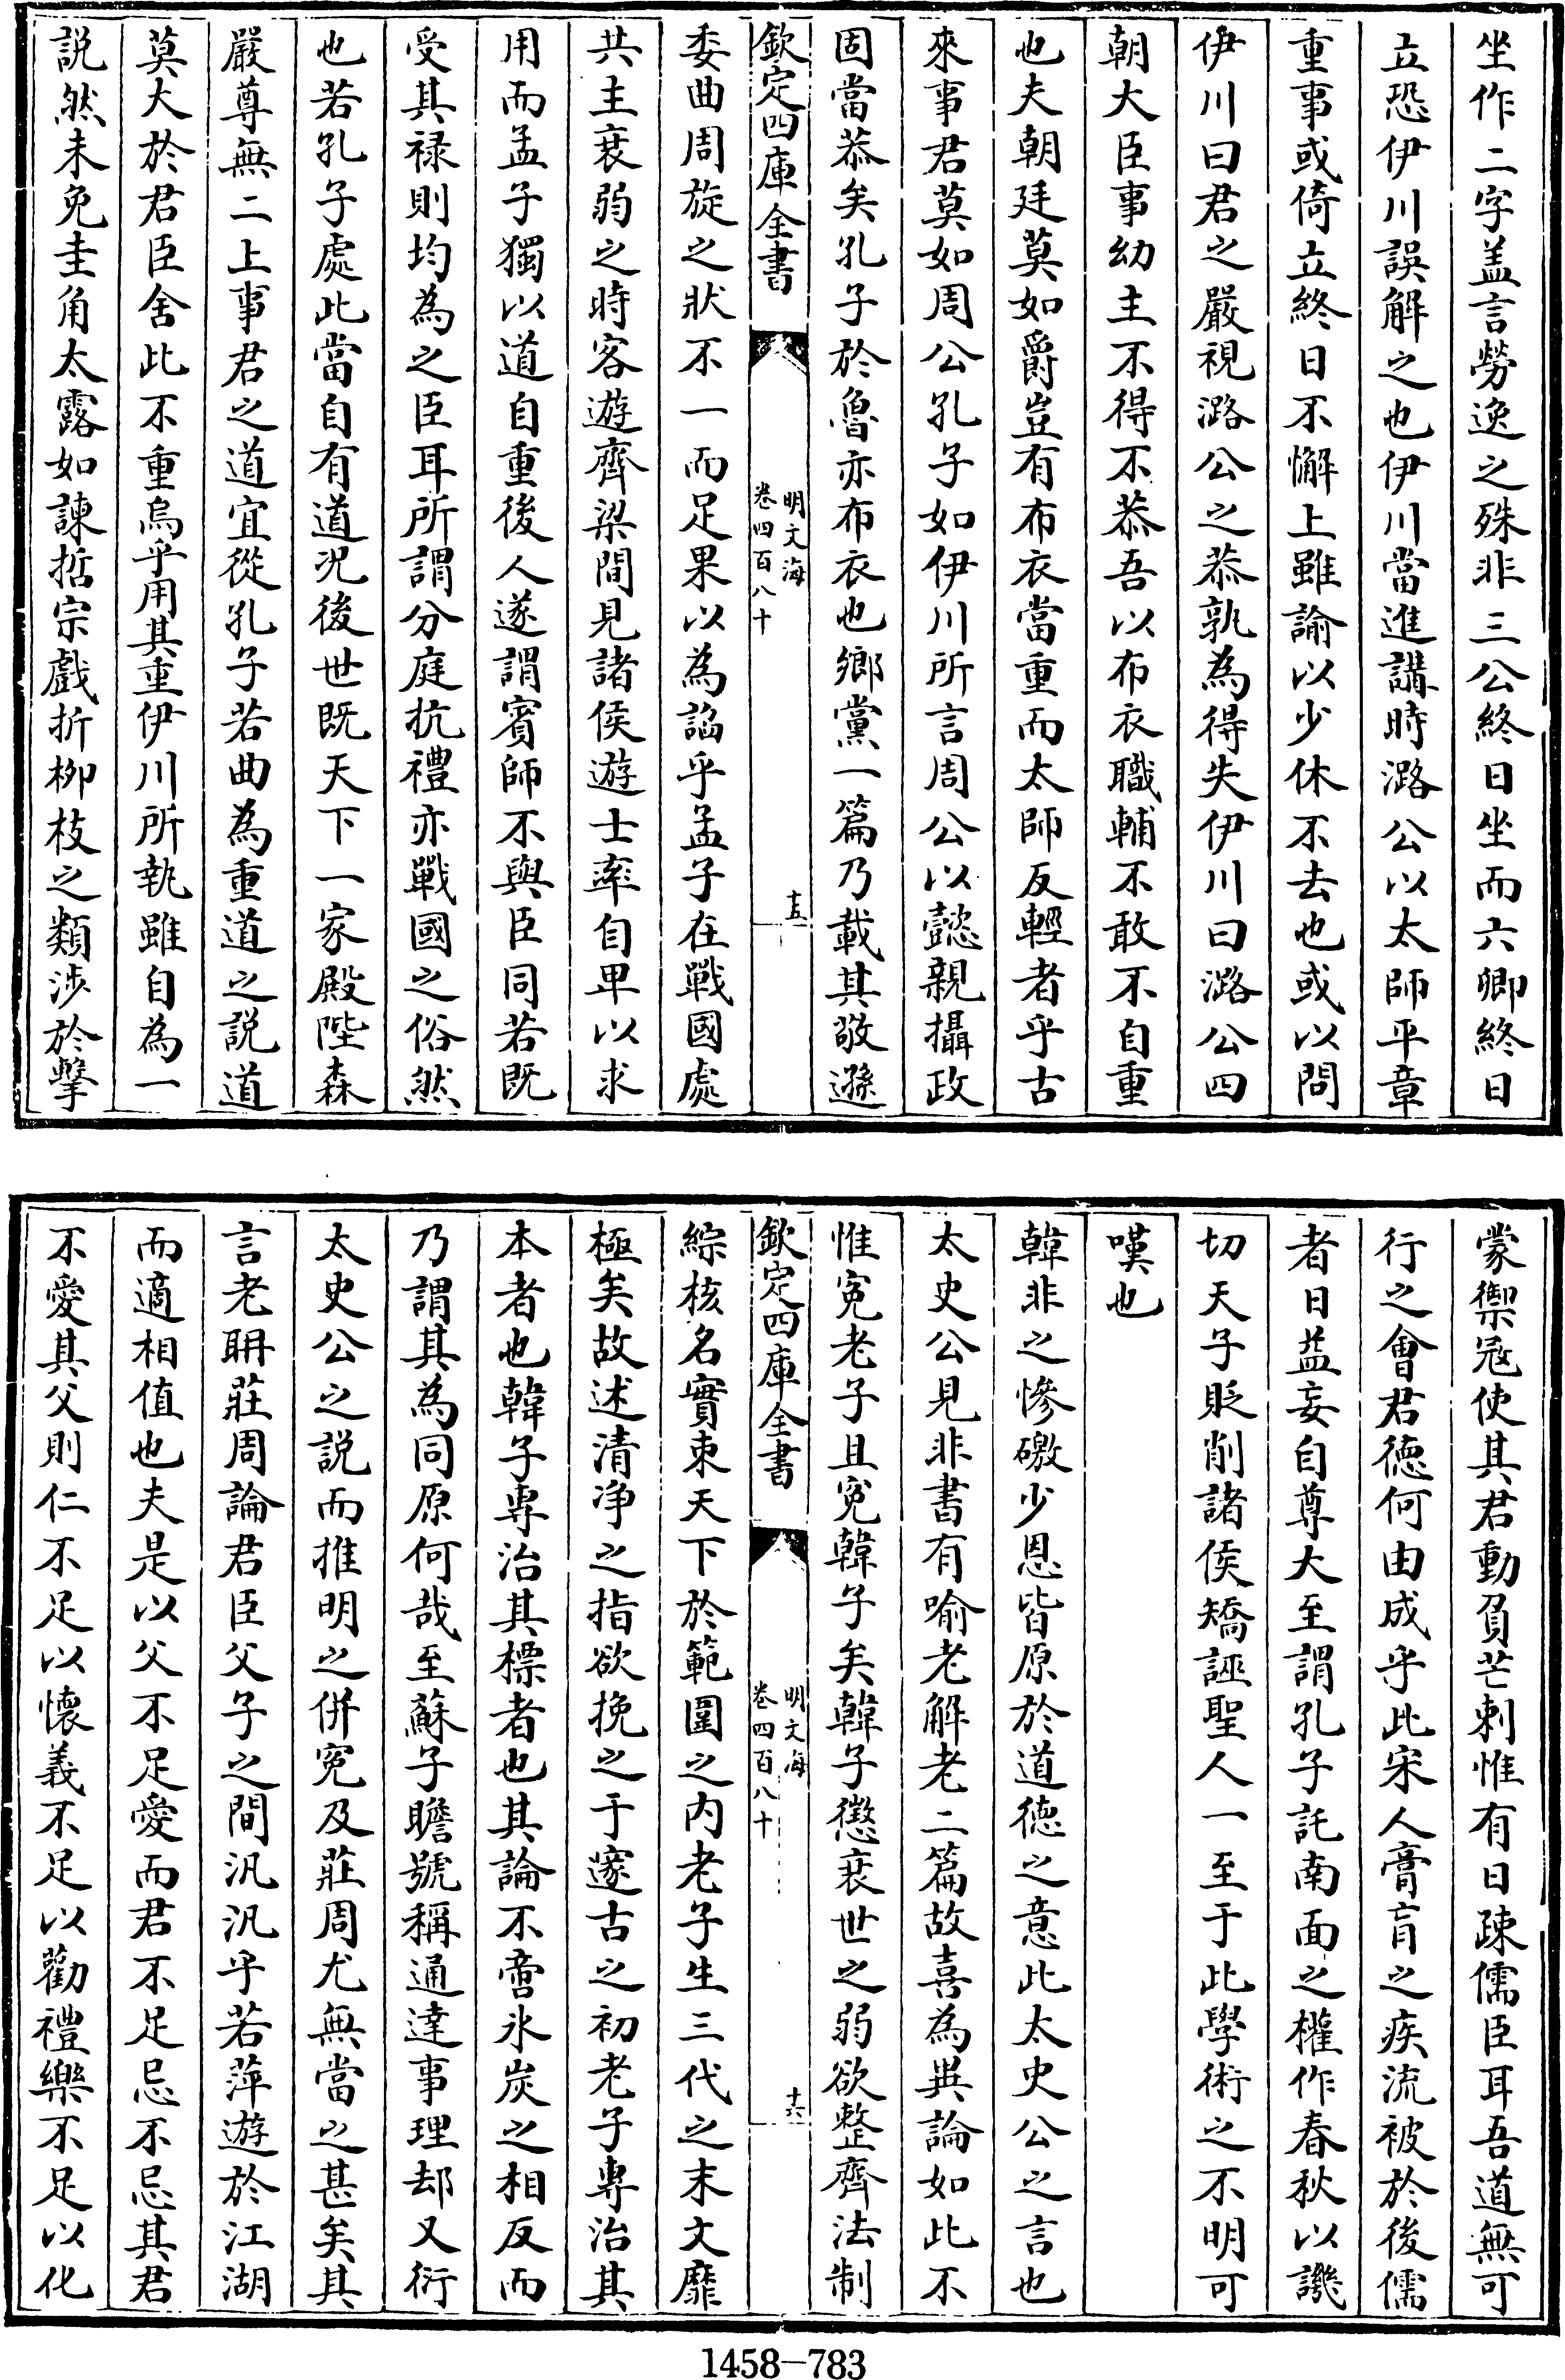 坐作二字盖言勞逸之殊非三公終日坐而六卿終日
立恐伊川誤解之也伊川當進講時潞公以太師平章
重事或倚立終日不懈上雖諭以少休不去也或以問
伊川曰君之嚴視潞公之恭孰為得失伊川曰潞公四
朝大臣事幼主不得不恭吾以布衣職輔不敢不自重
也夫朝廷莫如爵豈有布衣當重而太師反輕者乎古
來事君莫如周公孔子如伊川所言周公以懿親攝政
固當恭矣孔子於魯亦布衣也鄉黨一篇乃載其敬遜
欽定四庫全書
明文海
卷四百八十
十五
委曲周旋之狀不一而足果以為謟乎孟子在戰國處
共主衰弱之時客遊齊梁間見諸侯遊士率自卑以求
用而孟子獨以道自重後人遂謂賓師不與臣同若既
受其禄則均為之臣耳所謂分庭抗禮亦戰國之俗然
也若孔子處此當自有道況後世既天下一家殿陛森
嚴尊無二上事君之道宜從孔子若曲為重道之説道
莫大於君臣舍此不重烏乎用其重伊川所執雖自為一
説然未免圭角太露如諫哲宗戲折栁枝之類涉於擊
蒙禦冦使其君動負芒刺惟有日疎儒臣耳吾道無可
行之會君德何由成乎此宋人膏肓之疾流被於後儒
者日益妄自尊大至謂孔子託南面之權作春秋以譏
切天子貶削諸侯矯誣聖人一至于此學術之不明可
嘆也
韓非之慘礉少恩皆原於道德之意此太史公之言也
太史公見非書有喻老解老二篇故喜為異論如此不
惟寃老子且寃韓子矣韓子懲衰世之弱欲整齊法制
欽定四庫全書
明文海
卷四百八十
十六
綜核名實束天下於範圍之内老子生三代之末文靡
極矣故述清净之指欲挽之于邃古之初老子專治其
本者也韓子專治其標者也其論不啻氷炭之相反而
乃謂其為同原何哉至蘇子瞻號稱通達事理却又衍
太史公之説而推明之併寃及莊周尤無當之甚矣其
言老聃莊周論君臣父子之間汎汎乎若萍遊於江湖
而適相值也夫是以父不足愛而君不足忌不忌其君
不愛其父則仁不足以懷義不足以勸禮樂不足以化
1458-783